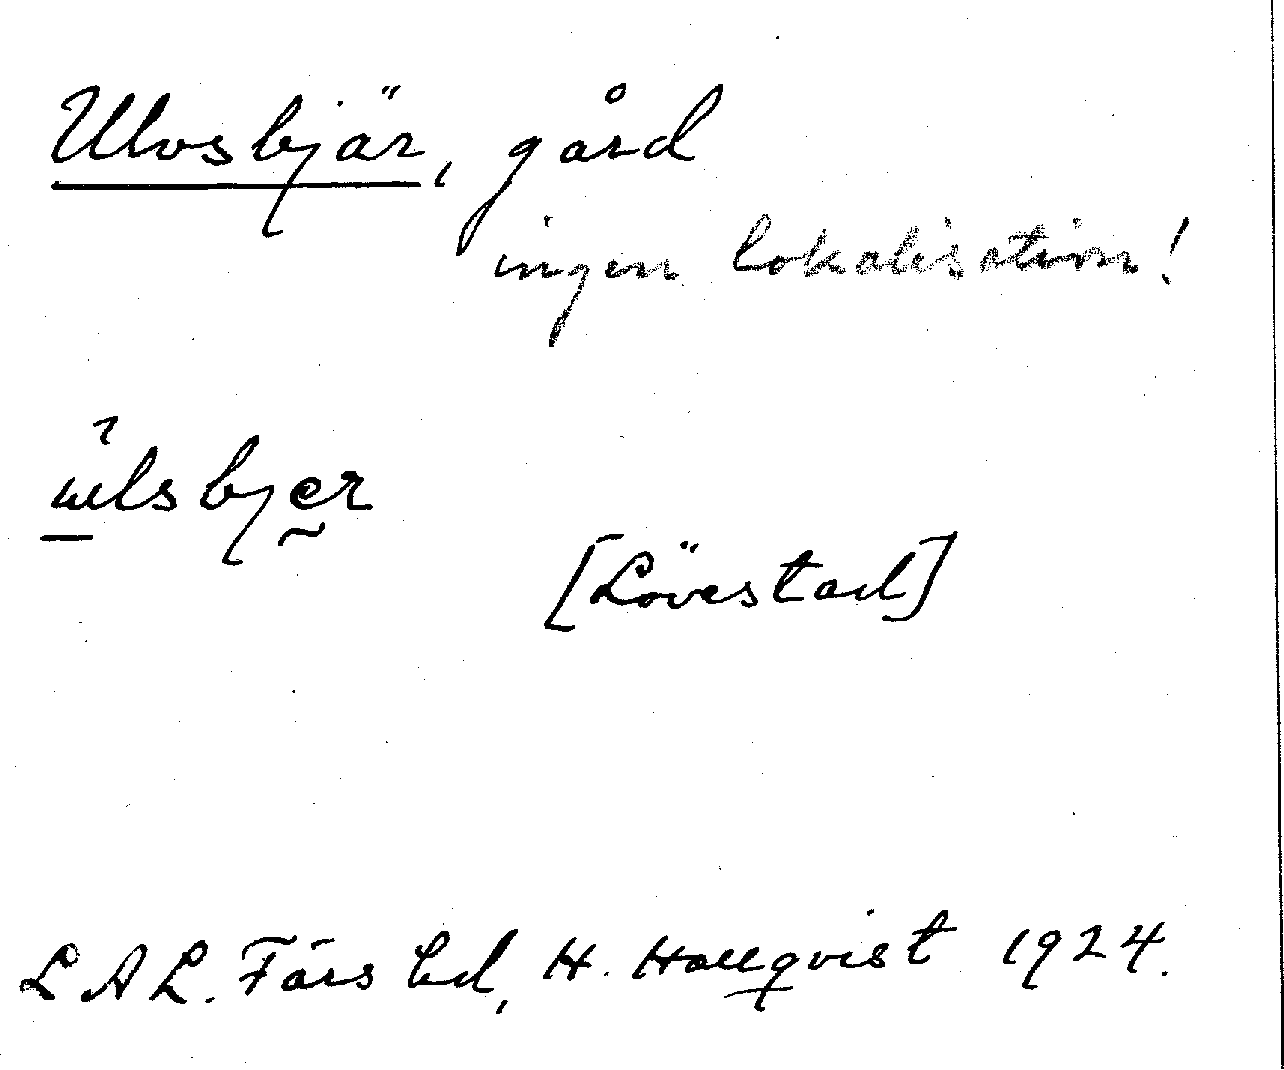 Ulvsbjär, gård
ingen lokalisation!
ulsbjer
[Lövestad]
LAL. Färs hd, H. Hallqvist 1924.